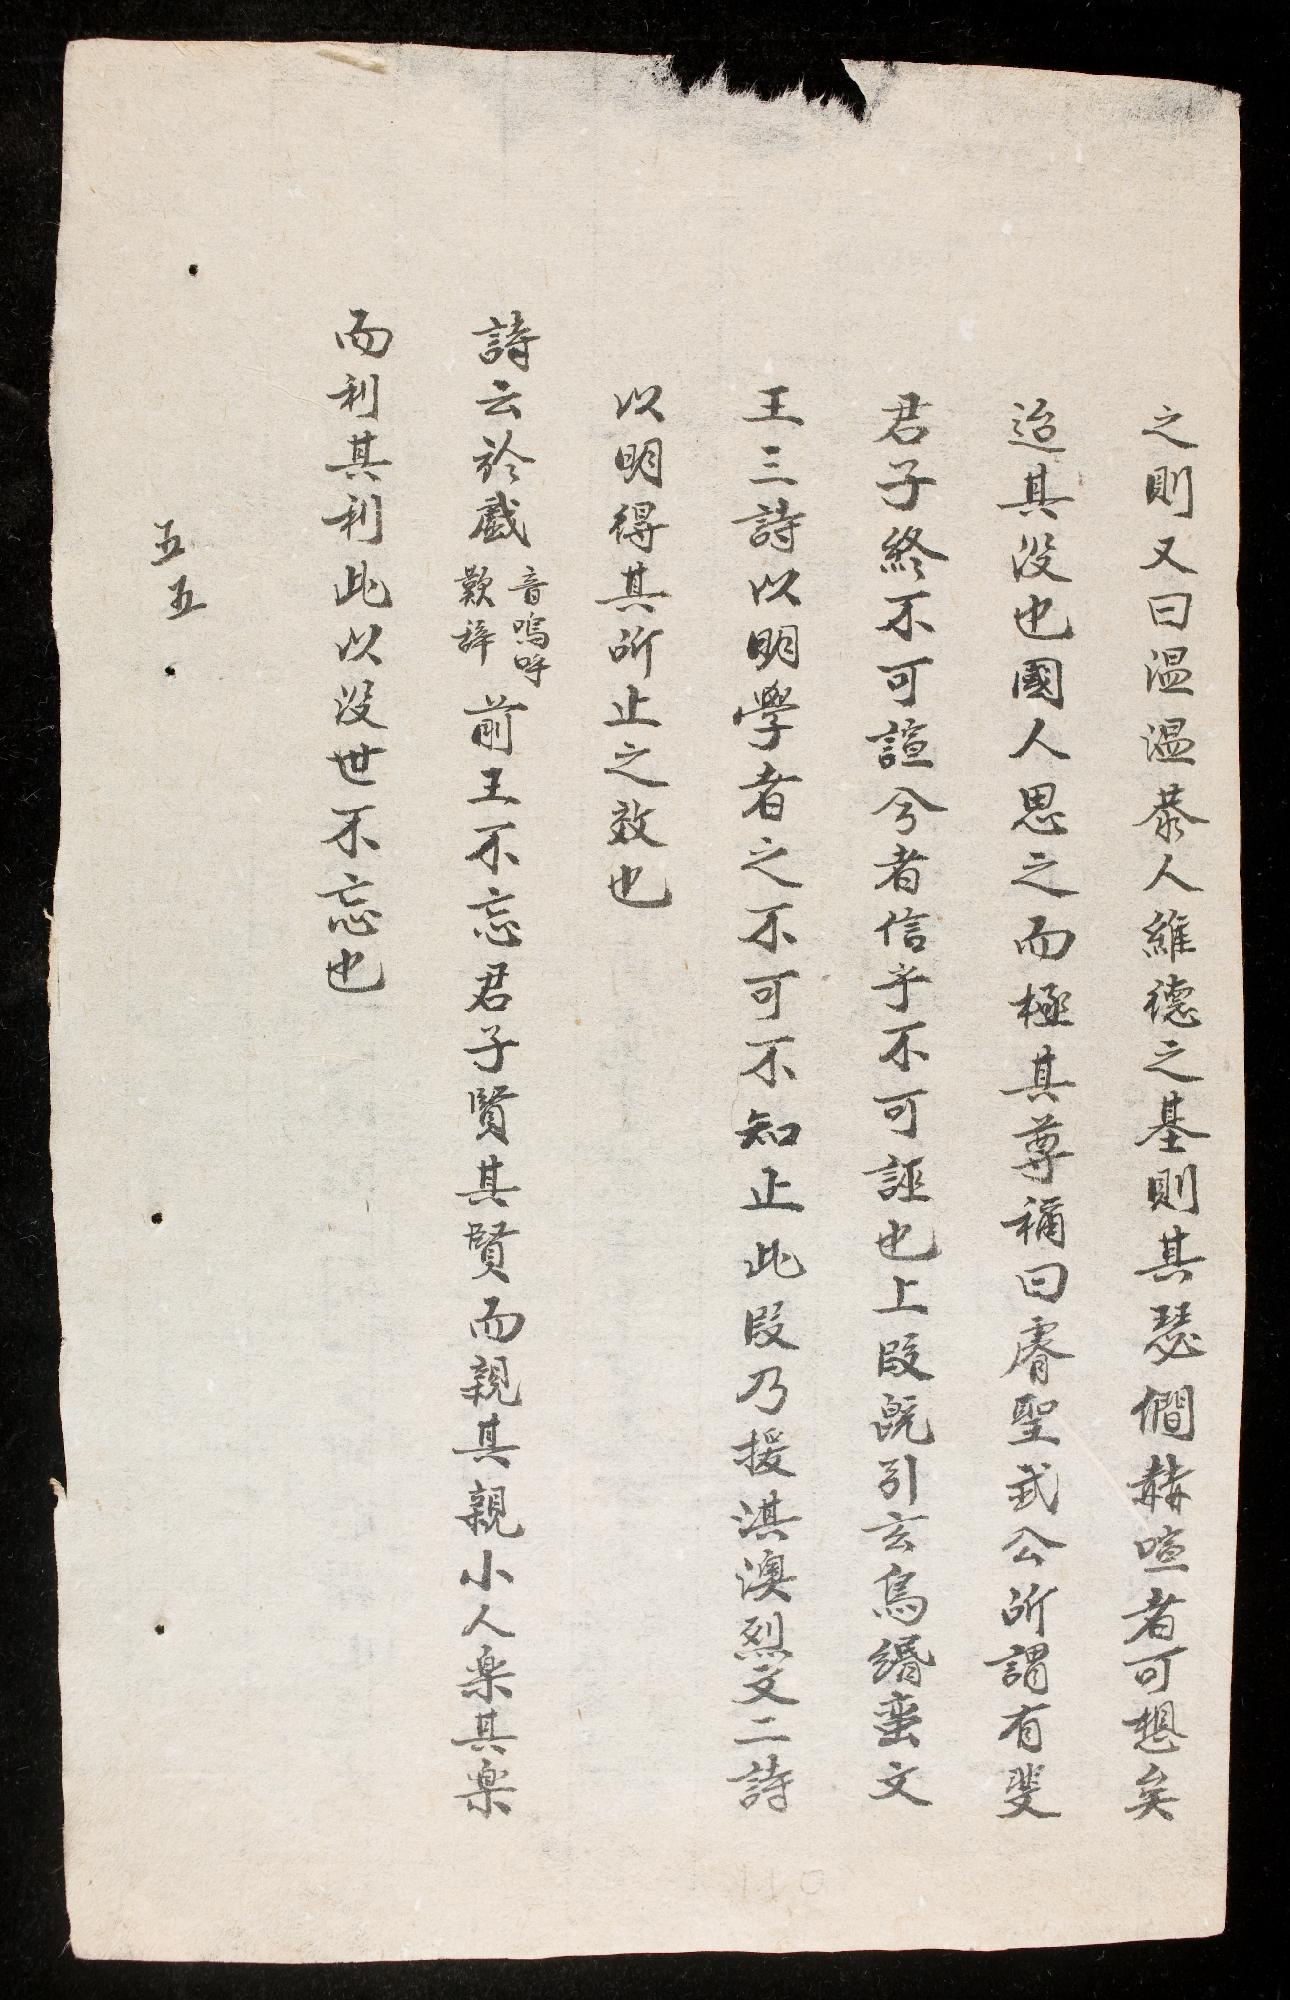 之則又曰温温恭人維德之基則其瑟僩赫喧者可想矣
迨其没也國人思之而極其尊稱曰睿聖武公所謂有斐
君子終不可諠兮者信乎不可誣也上段既引玄鳥緡蛮文
王三詩以明學者之不可不知止此段乃援淇澳烈文二詩
以明得其所止之效也
詩云於戲音嗚呼歎辞前王不忘君子賢其賢而親其親小人楽其楽
而利其利此以没世不忘也
五五